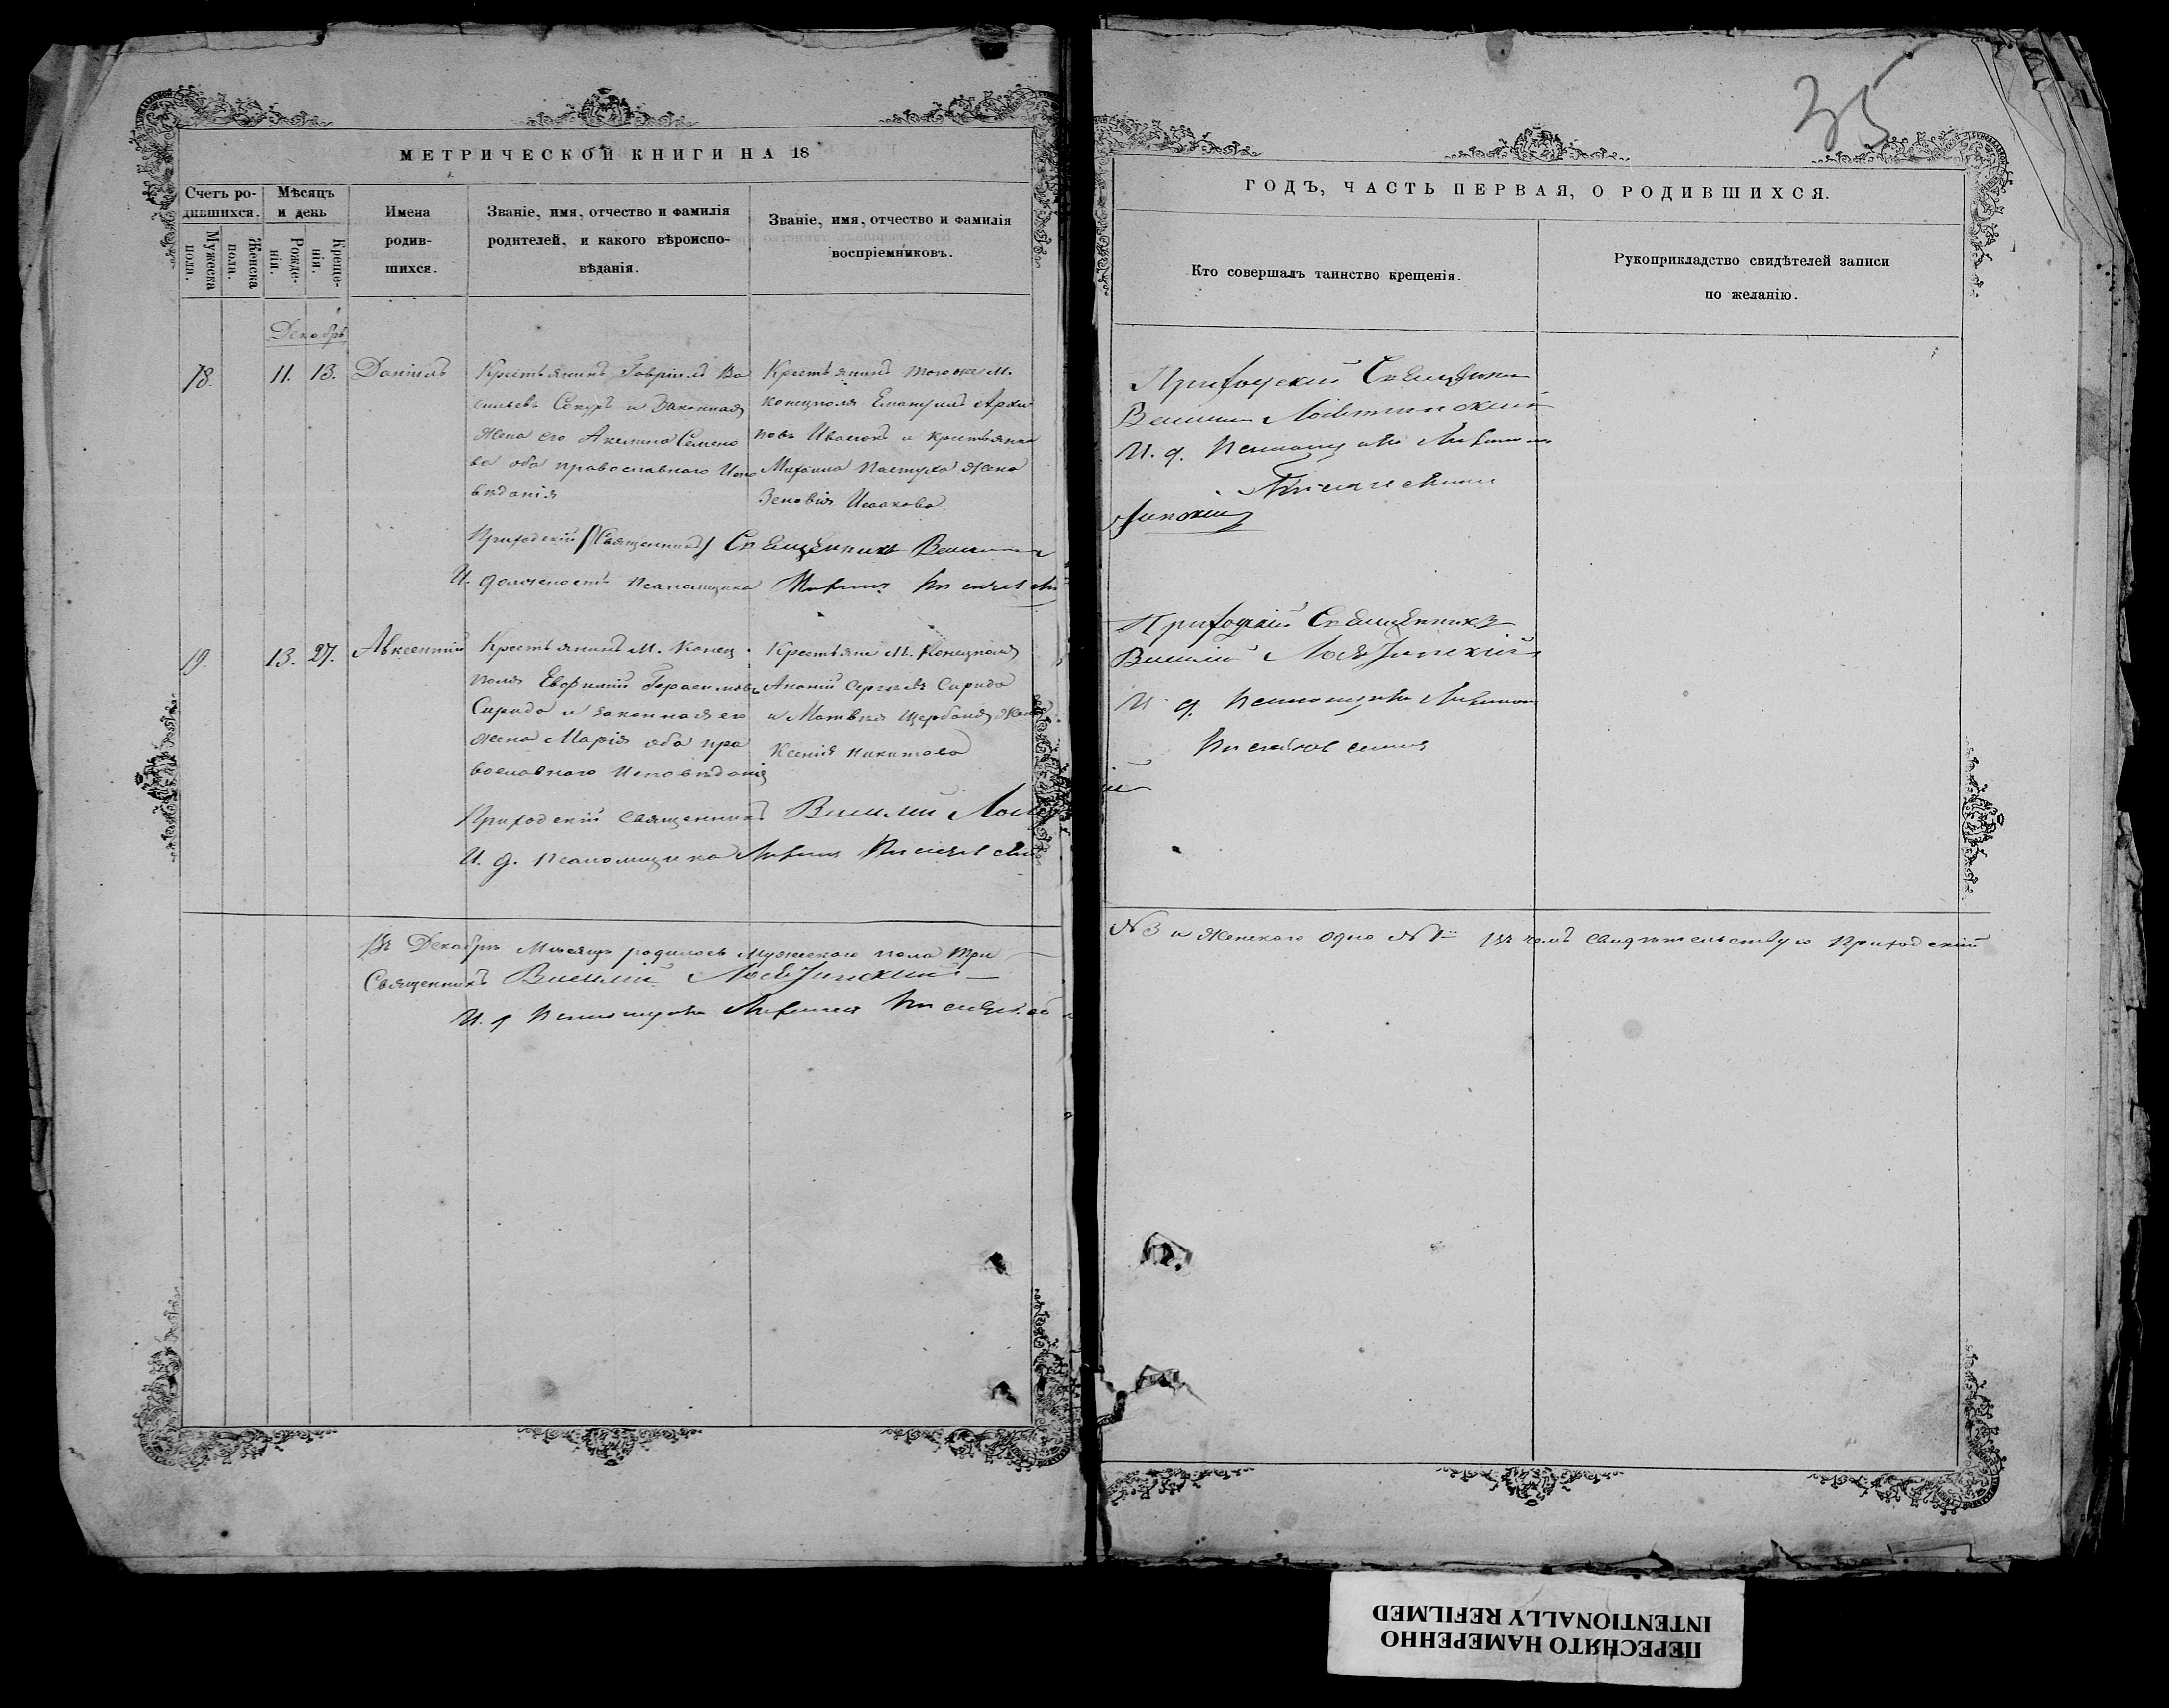 МЕТРИЧЕСКОЙ КНИГИ НА 18
Счетъ ро-
дившихся.
Мѣсяцъ
и день
Мужеска
пола.
Женска
пола.
Рожде-
нія.
Креще-
нія.
Имена
родив-
шихся.
Званіе, имя, отчество и фамилія
родителей, и какого вѣроиспо-
вѣданія.
Званіе, имя, отчество и фамилія
воспріемниковъ.
Декабрь
18. 11. 13. Даніилъ
Крестьянинъ Гавріилъ Ва
сильевъ Сокуръ и Законная
жена его Акилина Семено
ва оба православнаго Испо
вѣданія
Крестьянинъ того же М.
Конецполя Емануилъ Архи
повъ Иванюкъ и крестьянина
Михаила Пастуха жена
Зеновія Исаакова
Приходскій (Священникъ) Священникъ Василій
И. должность Псаломщика
19. 13. 27. Авксентій
Крестьянинъ М. Конец
поля Евфимій Герасимовъ
Сирида и законная его
жена Марія оба пра
вославнаго Исповѣданія
Крестьяне М. Конецполя
Ананій Сергѣевъ Сирида
и Матвѣя Щербаня жена
Ксенія Никитова
Приходскій Священникъ Василій
И. д. Псаломщика
Въ Декабрѣ Мѣсяцѣ родилось мужескаго пола три
Священникъ Василій
И. д. Псаломщика
35
ГОДЪ, ЧАСТЬ ПЕРВАЯ, О РОДИВШИХСЯ.
Кто совершалъ таинство крещенія.
Рукоприкладство свидѣтелей записи
по желанію.
Приходскій Священникъ
Василій
И. д. Псаломщика
Приходскій Священникъ
Василій
И. д. Псаломщика
№ 3 и Женскаго одно № 1 въ чемъ свидѣтельствую Приходскій
ПЕРЕСНЯТО НАМЕРЕННО
INTENTIONALLY REFILMED